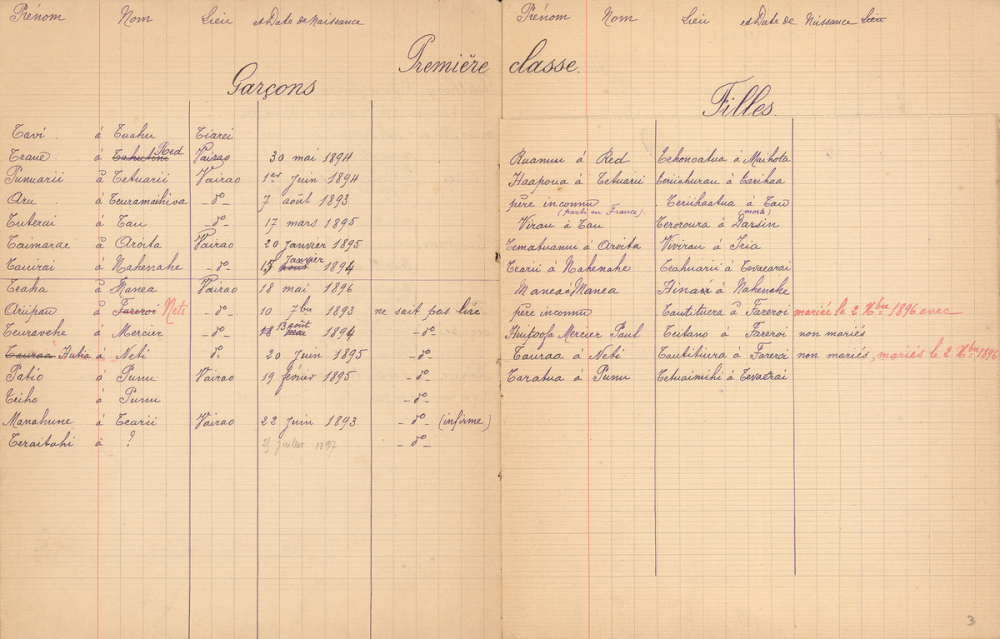 Prénom Nom Lieu et Date de Naissance Prénom Nom Lieu et Date de Naissance Lieu
Première classe.
Garçons Filles.
Tavi à Tuahu Tiarei
Teaue à Tahutini Red Vairao 30 mai 1894 Ruamuu à Red Tehonoatua à Maihota
Punuarii à Tetuarii Vairao 1er juin 1894 Haapoua à Tetuarii teriiahurau à tarihaa
Aru à Teuramaihiva - do - 7 août 1893 père inconnu (parti en France). Teriihaatua à Tau (morte)
Tuterai à Tau - do - 17 mars 1895 Virau à Tau Teroroura à Darsin
Taimarae à Aroita Vairao 20 Janvier 1895 Tematuanui à Aroita Vivirau à Iria
Tauirai à Nahenahe - do - 15 Janvier août 1894 Tearii à Nahenahe Teahuarii à Tevaearai
Teaha à Manea Vairao 18 mai 1896 Manea à Manea Hinaxi à Nahenahe
Ariipau à Fareroi Neti - do - 10 7bre 1893 ne sait pas lire père inconnu Tautitiura à Fareroi mariés le 2 Xbre 1896 avec
Teuravehe à Mercier - do - 13 août 1894 - do - Huitoofa Mercier Paul Teitano à Fareroi non mariés
Tauraa Hutia à Neti do - 20 juin 1895 - do - Tauraa à Neti Tautitiura à Fareroi non mariés, mariés le 2 Xbre 1896
Patio à Punu Vairao 19 février 1895 - do - Taratua à Punu Tetuaimihi à Tevaerai
Teiho à Punu - do -
Manahune à Tearii Vairao 22 juin 1893 - do - (infirme)
Teraitahi à ? Juillet 1897 - do -
3